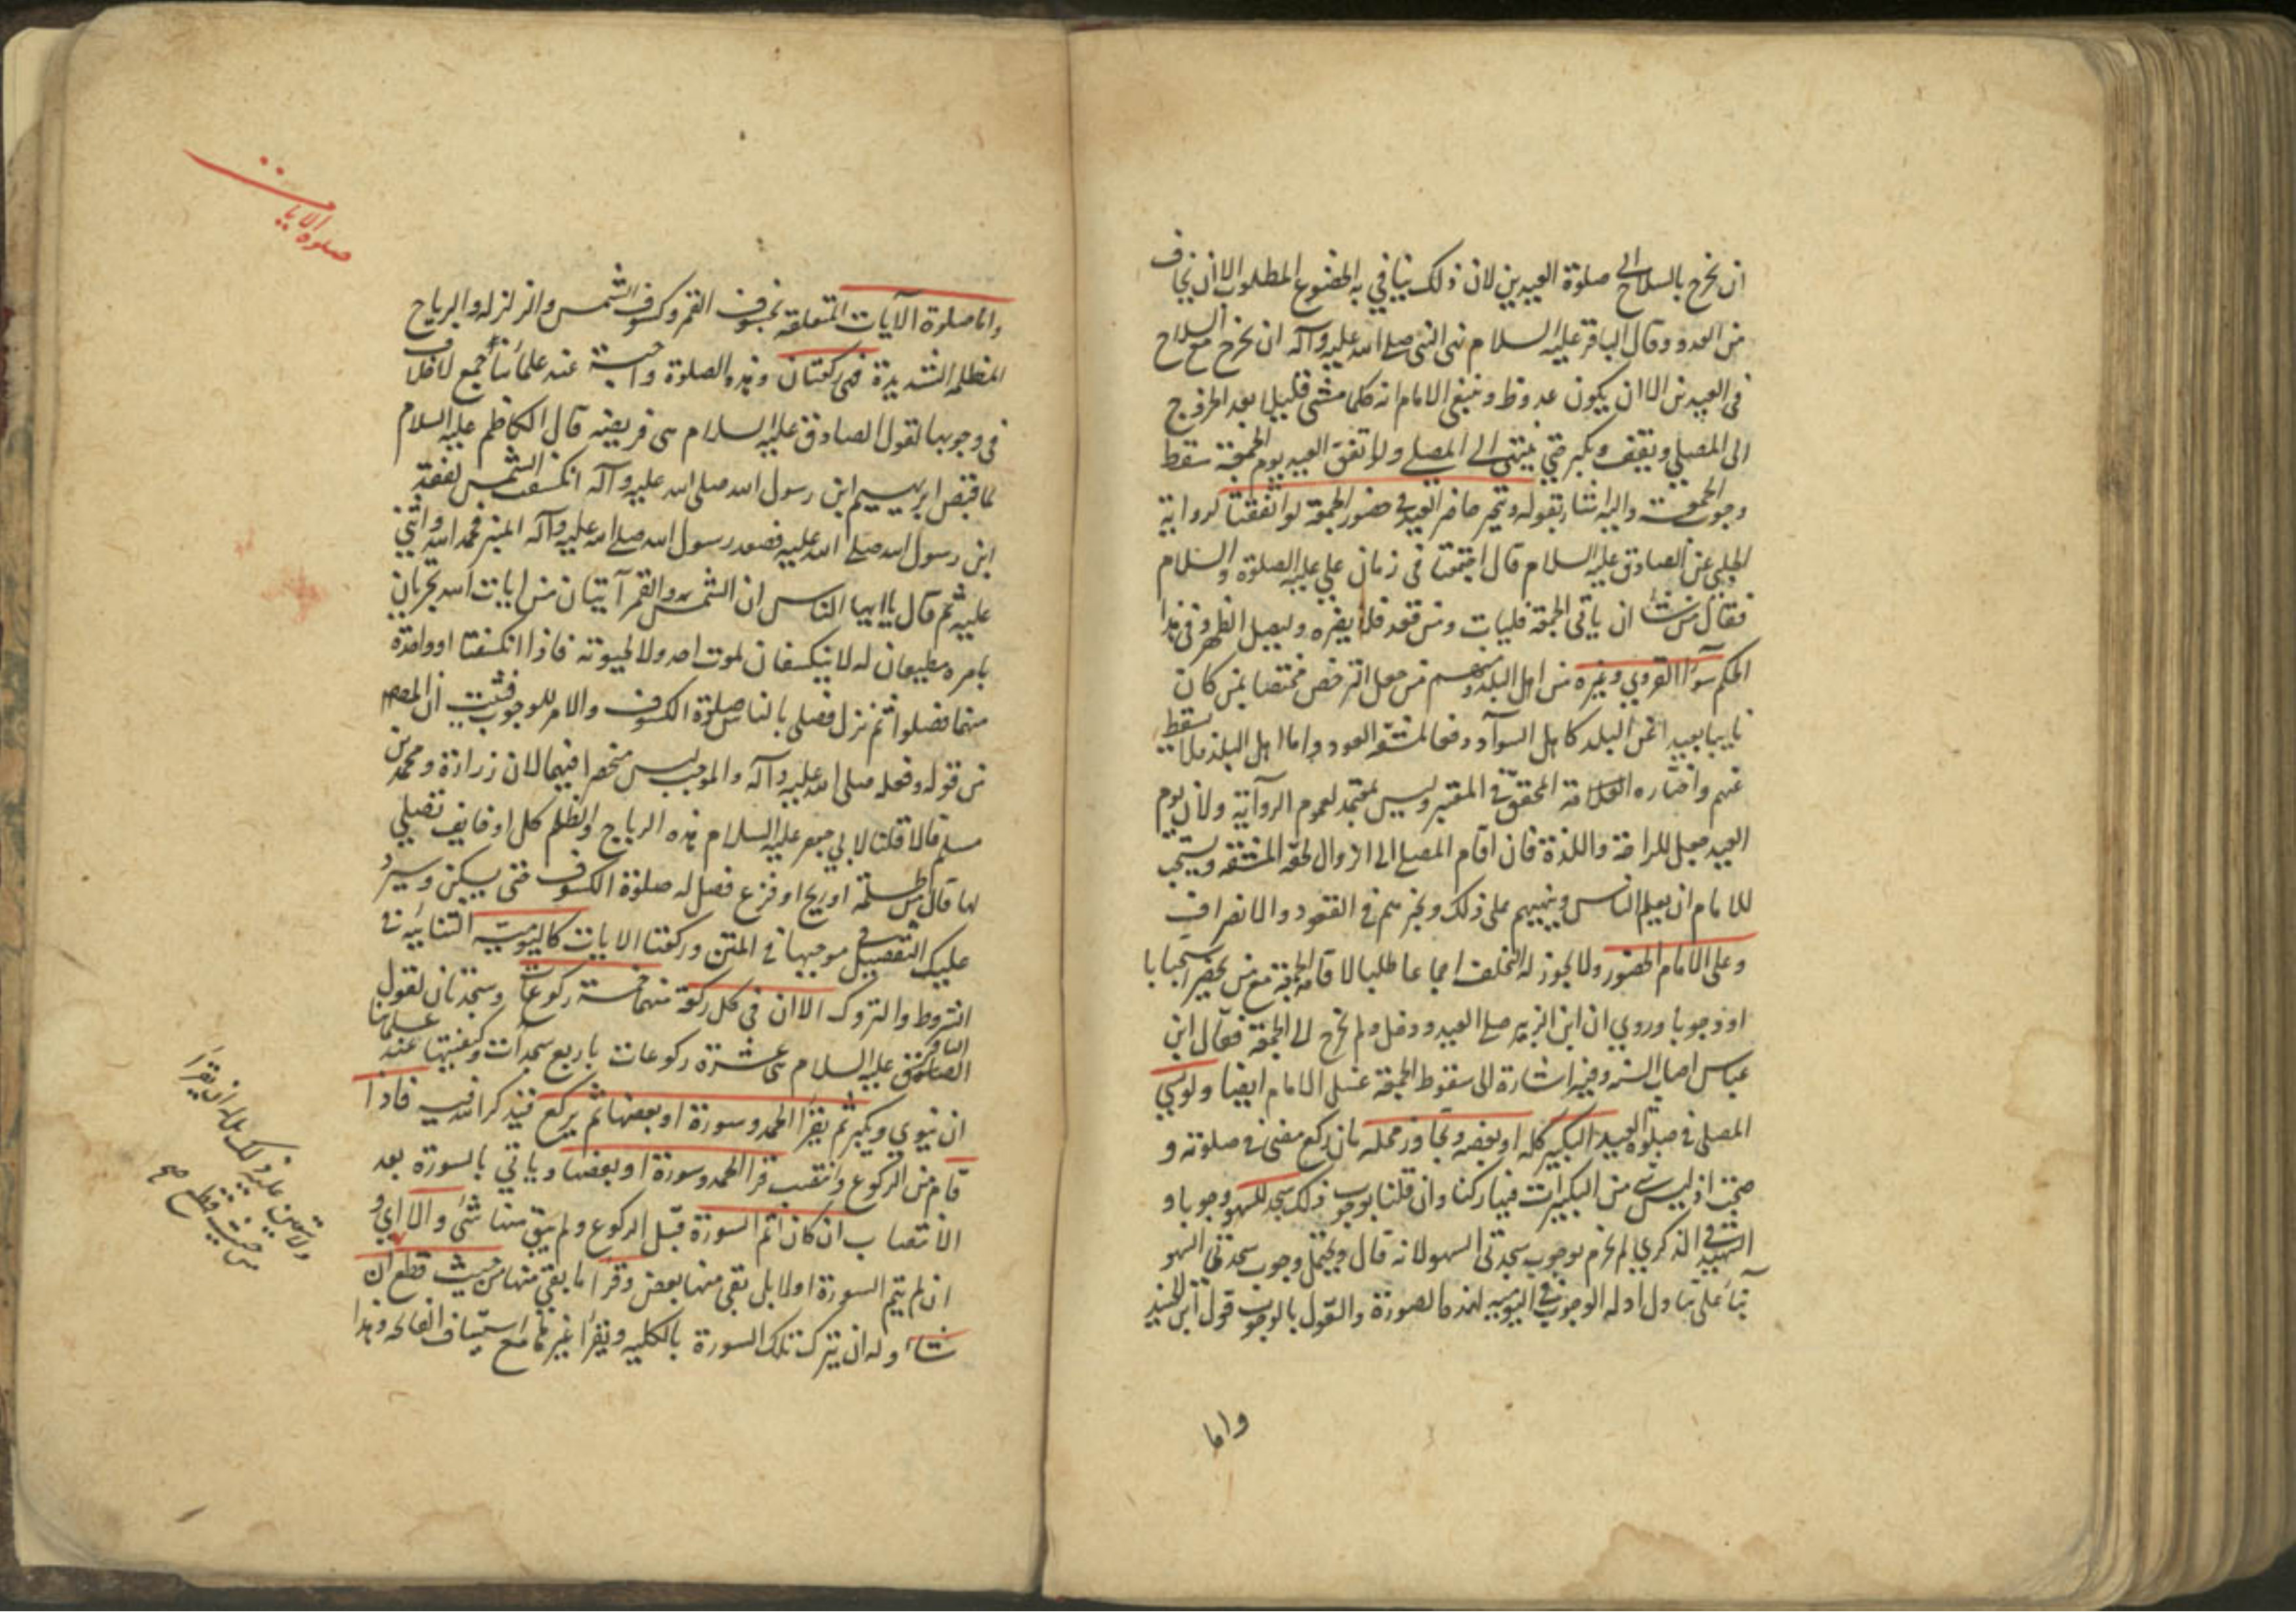 ان يخرج بالسلاح الى صلوة العيدين لان ذلك ينافي به الخضوع المطلوب الا ان يخاف
من العدو وقال الباقر عليه السلام نهى النبي صلى الله عليه وآله ان يخرج السلاح
في العيدين الا ان يكون عدو ظ وينبغي الامام انه كلما مشى قليلا بعد الخروج
الى المصلي ويقف ويكبر حتى ينتهي الى المصلى ولو اتفق العيد يوم الجمعة سقط
وجوب الجمعة واليه اشار بقوله ويتخير حاضر العيد في حضور الجمعة لو اتفقتا لرواية
الحلبي عن الصادق عليه السلام قال اجتمعتا في زمان علي عليه الصلوة والسلام
فقال من شاء ان ياتي الجمعة فليات ومن قعد فلا يضره وليصل الظهر وفي هذا
الحكم سواء القروي وغيره من اهل البلد ومنهم من جعل الترخص مختصا بمن كان
نايبا بعيدا عن البلد كاهل السواد دفعا لمشقة العود واما اهل البلد فلا يسقط
عنهم واختاره العلامة المحقق في المعتبر وليس بمعتمد لعموم الرواية ولان يوم
العيد جعل للراحة واللذة فان اقام المصلي الى الزوال لحقه المشقة ويستحب
للامام ان يعلم الناس وينبههم على ذلك ويخبرهم في القعود والانصراف
وعلى الامام الحضور ولا يجوز له التخلف اجماعا طلبا لاقامة الجمعة مع من يحضر استحبابا
او وجوبا وروي ان ابن الزبير صلى العيد ودخل ولم يخرج الى الجمعة فقال ابن
عباس اصاب السنة وفيه اشارة الى سقوط الجمعة عنلى الامام ايضا ولو نسي
المصلى في صلوة العيد التكبير كله او بعضه وتجاوز محله بان ركع مضى في صلوته و
صحت اذ ليس شي من التكبيرات فيها ركنا وان قلنا بوجوب ذلك سجد للسهو وجوبا و
الشهيد في الذكرى لم يجزم بوجوب سجدتى السهو لانه قال ويحتمل وجوب سجدتي السهو
بناء على تناول ادلة الوجوب في اليومية لهذه الصورة والقول بالوجوب قول ابن الجنيد
واما
صلوة الايات
واما صلوة الآيات المتعلقة بخسوف القمر وكسوف الشمس والزلزله والرياح
المظلمه الشديدة فهي ركعتان وهذه الصلوة واجبة عند علمائنا اجمع لا خلاف
في وجوبها لقول الصادق عليه السلام هى فريضه قال الكاظم عليه السلام
لما قبض ابرهيم ابن رسول الله صلى الله عليه وآله انكسفت الشمس لفقد
ابن رسول الله صلى الله عليه فصعد رسول الله صلى الله عليه وآله المنبر فحمد الله واثنى
عليه ثم قال يا ايها الناس ان الشمس والقمر آيتان من ايات الله تجريان
بامره مطيعان له لا ينكسفان لموت احد ولا لحيوته فاذا انكسفتا او واحدة
منهما فصلوا ثم نزل فصلى بالناس صلوة الكسوف والامر للوجوب فثبت ان المصـ
من قوله وفعله صلى الله عليه وآله والموجب ليس منحصرا فيهما لان زرارة ومحمد بن
مسلم قالا قلنا لابي جعفر عليه السلام هذه الرياح والظلم كل اوقايف تصلي
لها قال من ظلمة او ريح او فزع فصل له صلوة الكسوف حتى يسكن وسيرد
عليك التفصيل في موجبها في المتن وركعتا الايات كاليومية الثنائيه في
الشروط والتروك الا ان في كل ركعة منهما خمسة ركوعات وسجدتان لقول
الباقر الصادق عليه السلام هى عشرة ركوعات باربع سجدات وكيفيتها عند علمائنا
ان ينوي ويكبر ثم يقرأ الحمد وسورة او بعضها ثم يركع فيذكر الله فيه فاذا
قام من الركوع وانتصب قرأ الحمد وسورة او بعضها وياتي بالسورة بعد
الانتصاب ان كان اتم السورة قبل الركوع ولم يبق منها شئ والا اي و
ان لم يتم السورة اولا بل بقي منها بعض وقرأ ما بقي منها من حيث قطع ان
شاء وله ان يترك تلك السورة بالكليه ويقرأ غيرها مع استيناف الفاتحه وهذا
ولا يتعين عليه ذلك بل له ان يقرأ
من حيث قطع صح